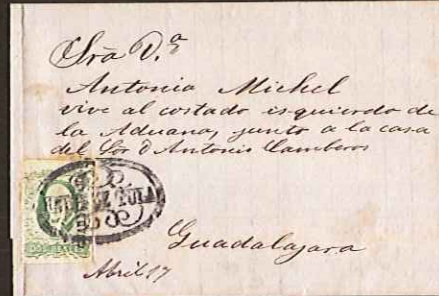 Sra D.ª
Antonia Michel
vive al costado isquierdo de
la Aduana, junto a la casa
del Sor D Antonio Camberos
Guadalajara
Abril 17